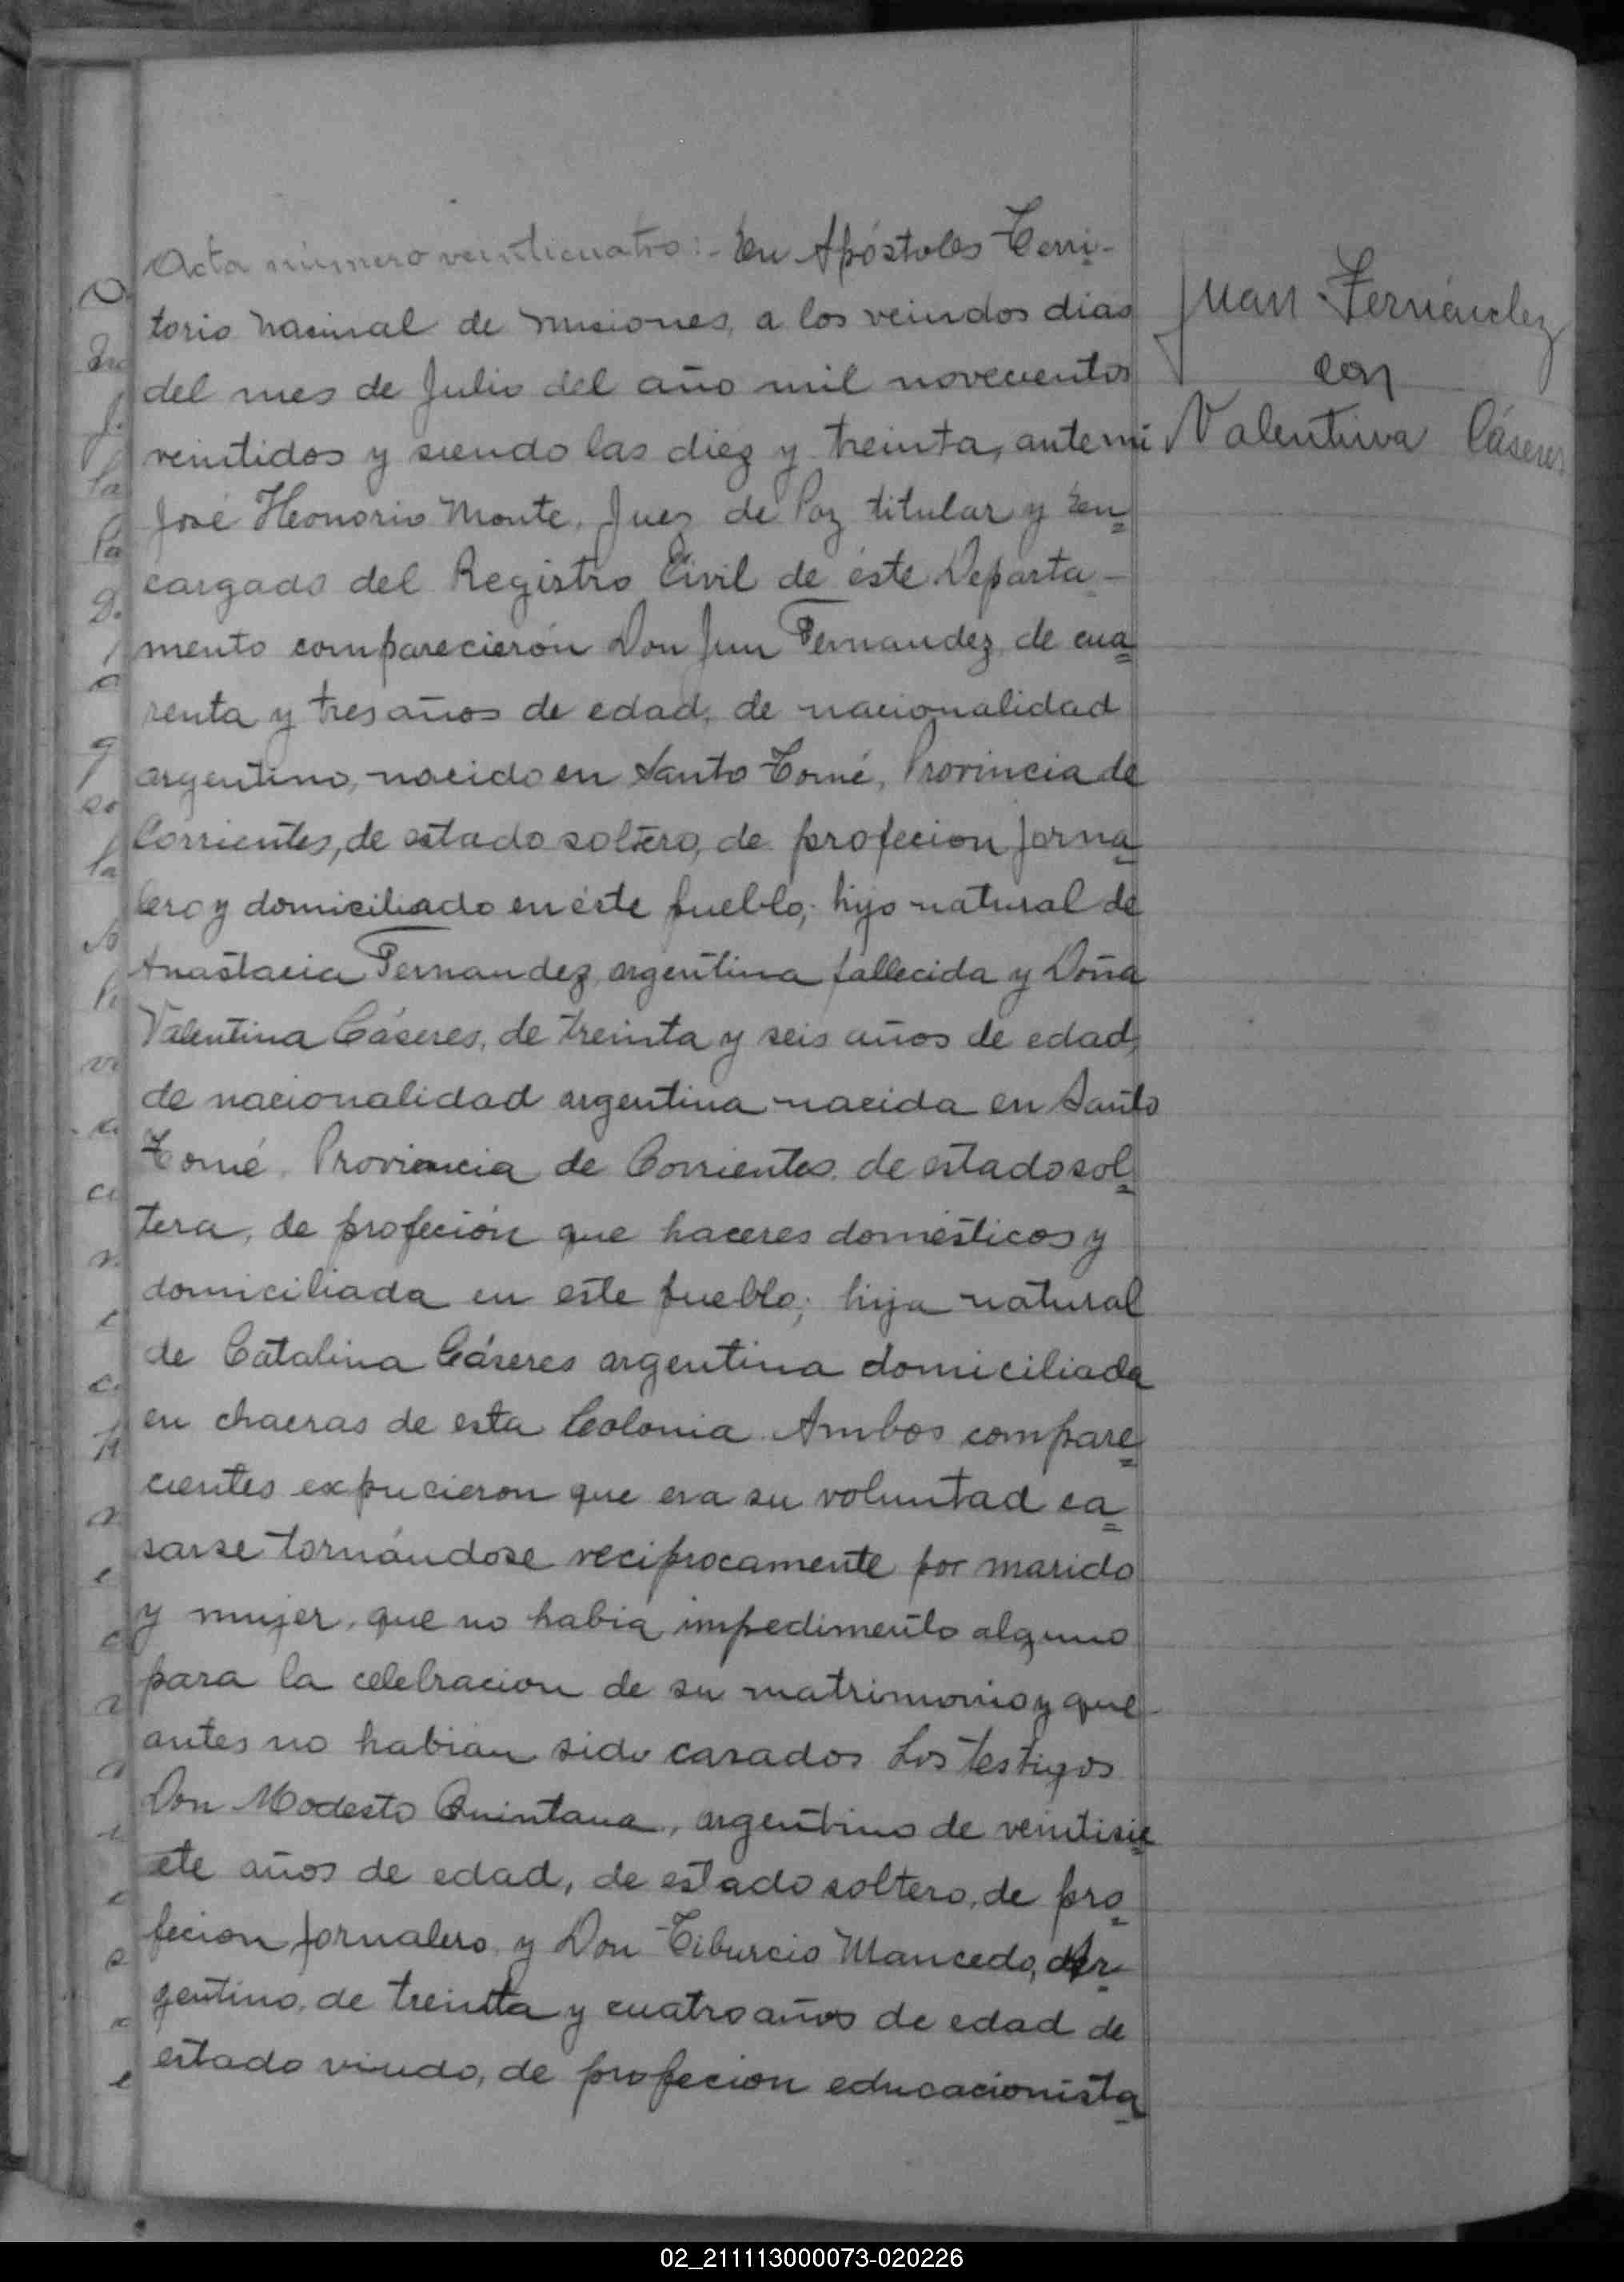 Acta número veinticuatro:- En Apóstoles Terri-
torio Nacinal de Misiones, a los veindos dias
del mes de Julio del año mil novecientos
veintidos y siendo las diez y treinta, ante mi
José Honorio Monte, Juez de Paz titular y En=
cargado del Registro Civil de éste Departa-
mento comparecierón Don Jun Fernandez, de cua=
renta y tres años de edad, de nacionalidad
argentino, nacido en Santo Tomé, Provincia de
Corrientes, de estado soltero, de profecion jorna=
lero y domiciliado en éste pueblo; hijo natural de
Anastacia Fernandez, argentina fallecida y Doña
Valentina Cáseres, de treinta y seis años de edad,
de nacionalidad argentina nacida en Santo
Tomé, Provincia de Corrientes, de estado sol=
tera, de profeción que haceres domésticos y
domiciliada en este pueblo; hija natural
de Catalina Cáseres argentina domiciliada
en chacras de esta Colonia. Ambos compare=
cientes expucieron que era su voluntad ca=
sarse tornándose reciprocamente por marido
y mujer, que no habia impedimento alguno
para la celebracion de su matrimonio y que
antes no habian sido casados Los testigos
Don Modesto Quintana, argentino de veintisie=
ete años de edad, de estado soltero, de pro=
fecion jornalero y Don Tiburcio Mancedo, Ar=
gentino, de treinta y cuatro años de edad de
estado viudo, de profecion educacionista
Juan Fernández
con
Valentina Cáseres
02_211113000073-020226